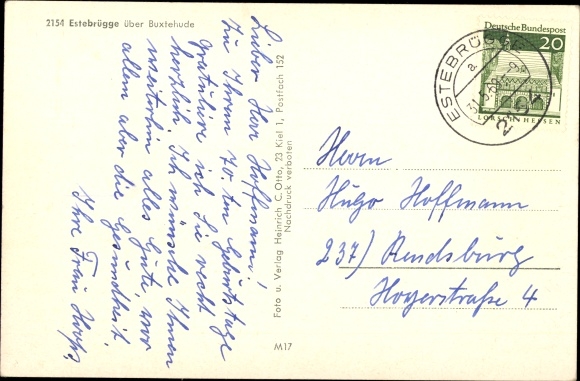 2154 Estebrügge über Buxtehude
Lieber Herr Hoffmann!
Zu Ihrem 70 ten Geburtstage
gratuliere ich Sie recht
herzlich. Ich wünsche Ihnen
weiterhin alles Gute, vor
allem aber die Gesundheit.
Ihre Frau
Foto u. Verlag Heinrich C. Otto, 23 Kiel 1, Postfach 152
Nachdruck verboten
M17
Deutsche Bundespost
20
LORSCH/HESSEN
ESTEBRÜGGE
a
Herrn
Hugo Hoffmann
237) Rendsburg
Hoyerstraße 4